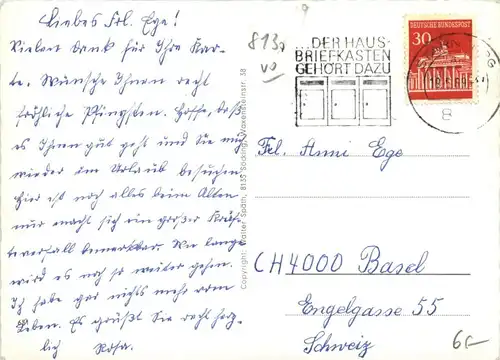 Liebes Frl. Ege!
Vielen Dank für Ihre Kar-
te. Wünsche Ihnen recht
fröhliche Pfingsten. Hoffe, daß
es Ihnen gut geht und Sie mich
wieder im Urlaub besuchen
Hier ist noch alles beim Alten
nur macht sich ein großer Kräf-
teverfall bemerkbar. Wie lange
wird es noch so weiter gehen.
Ich habe gar nichts mehr vom
Leben. Es grüßt Sie recht herz-
lich Rosa.
Copyright: Walter Späth, 8135 Söcking, Waxensteinstr. 38
...DER HAUS-
BRIEFKASTEN
GEHÖRT DAZU
DEUTSCHE BUNDESPOST
30
8
Frl. Anni Ege
CH4000 Basel
Engelgasse 55
Schweiz